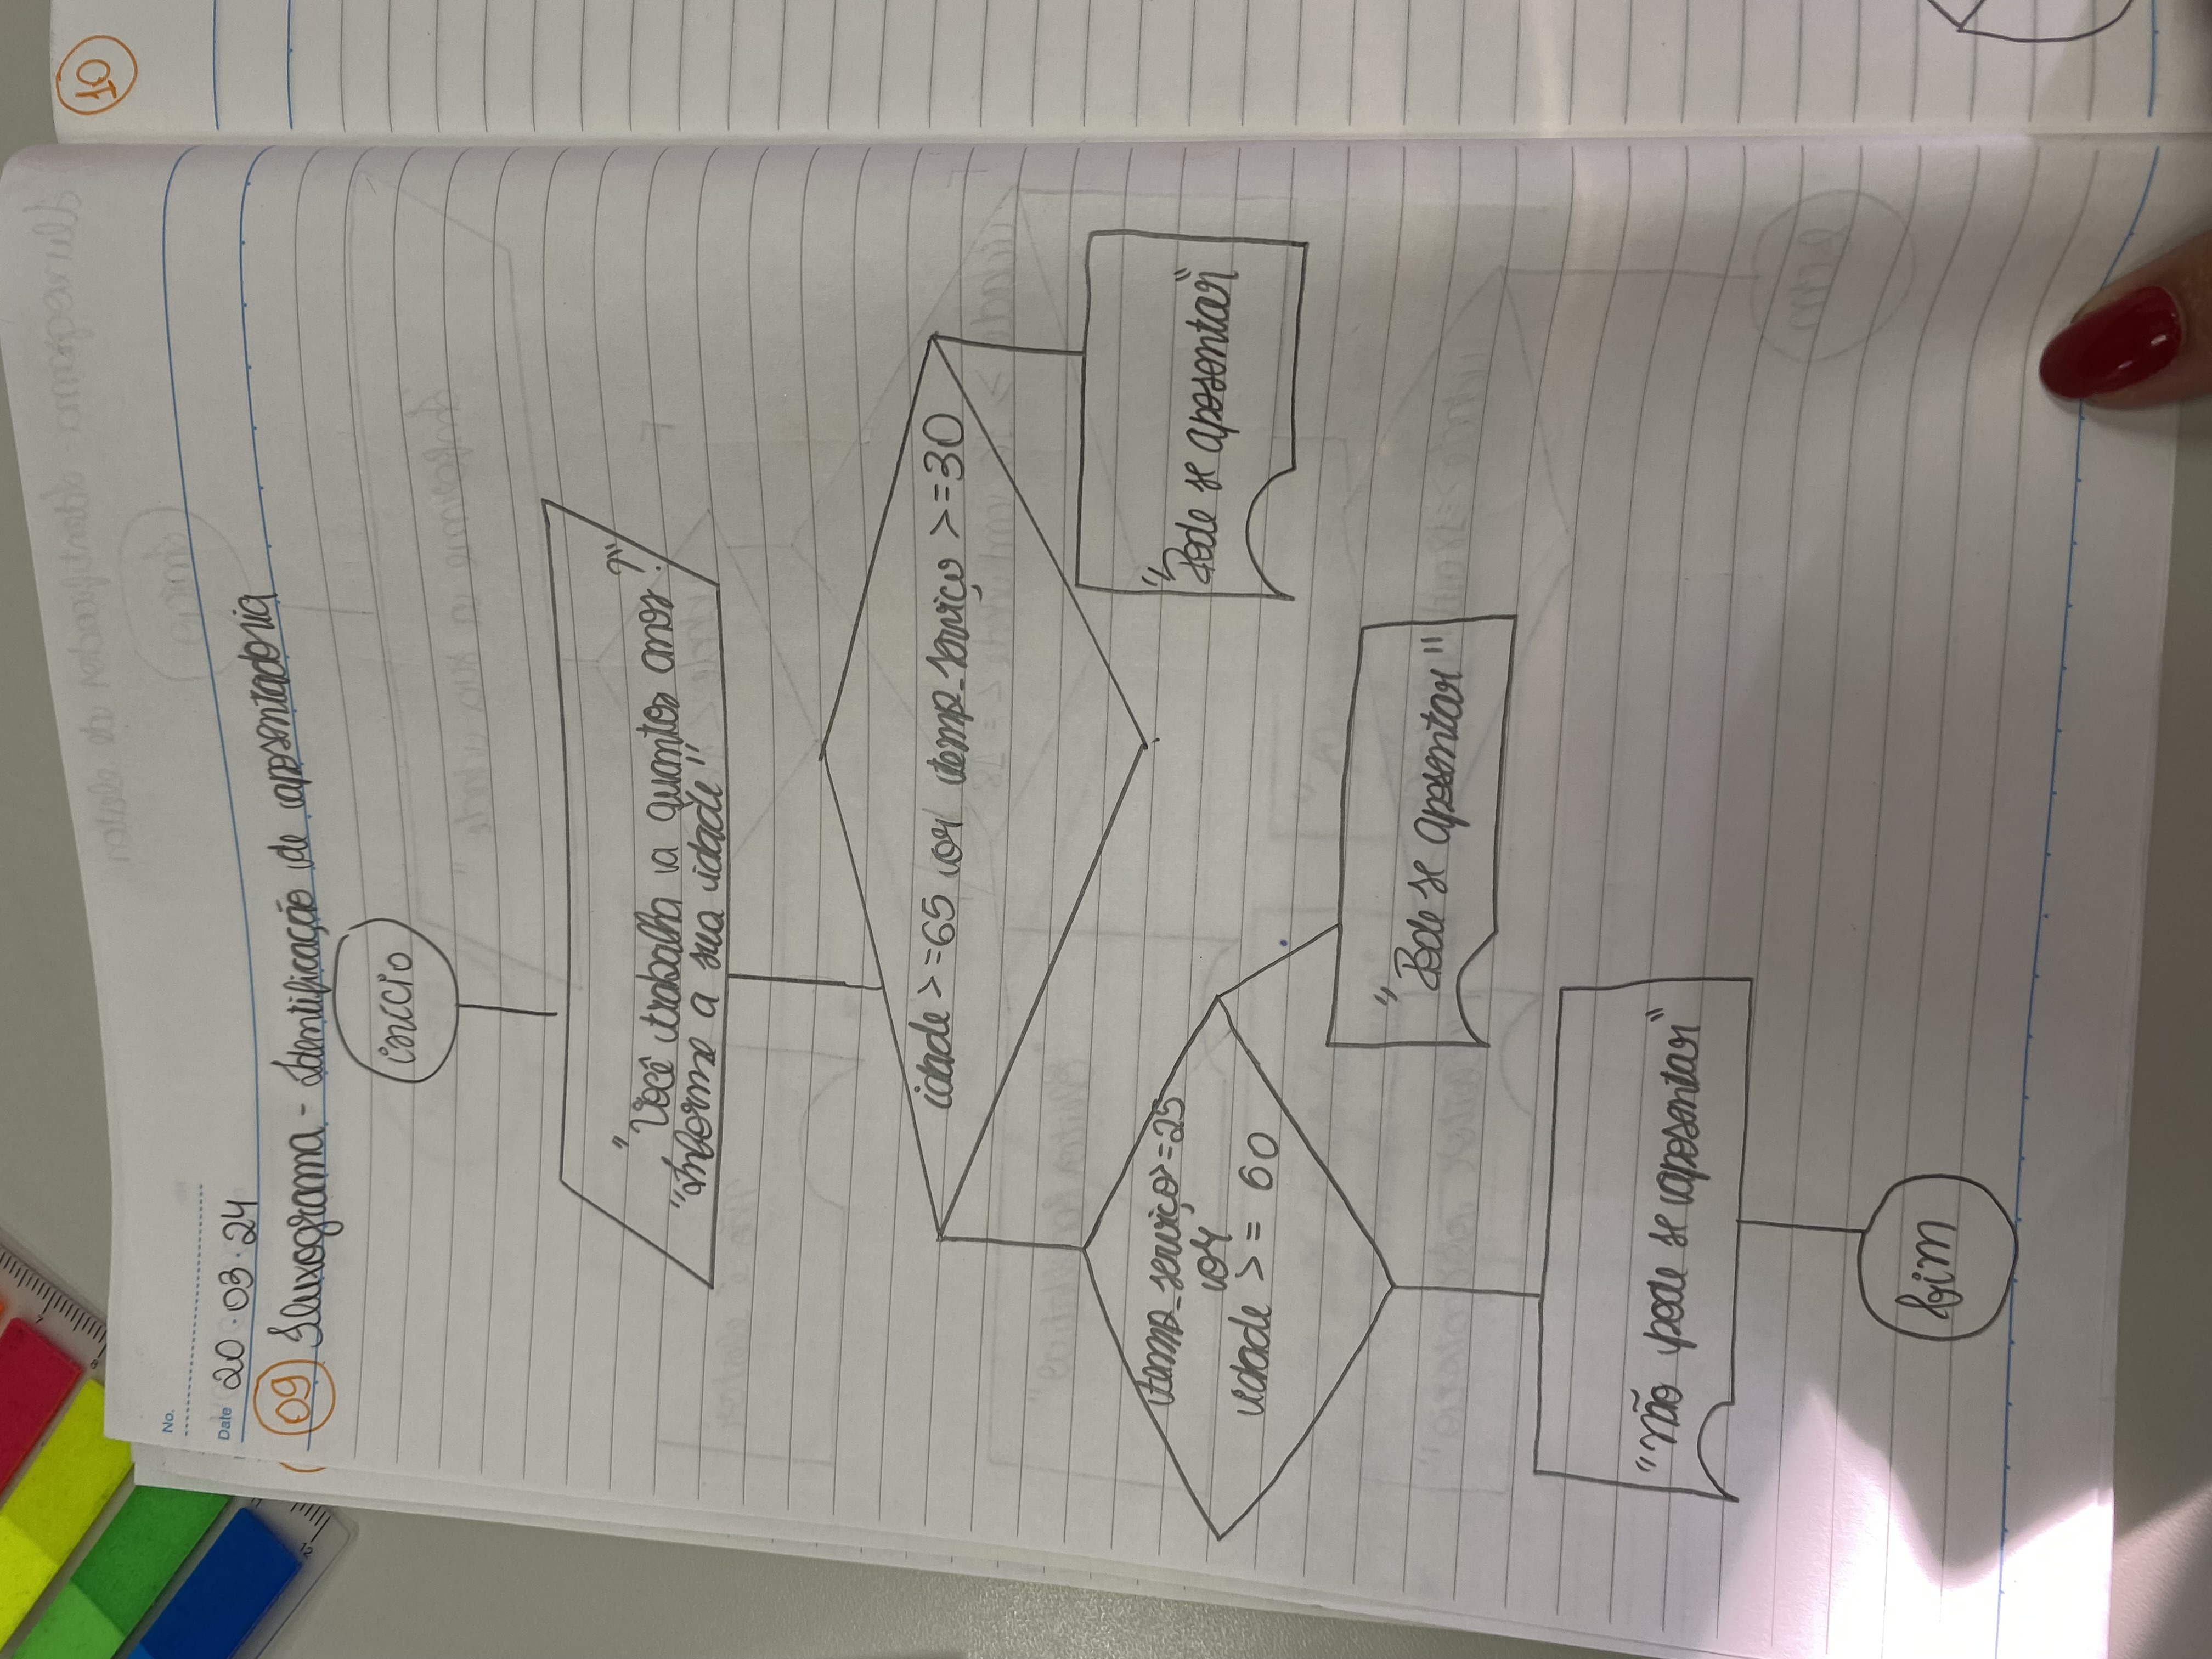 10
No.
Date 20.03.24
09 Fluxograma - Identificação de aposentadoria
início
"Você trabalha a quantos anos?"
"Informe a sua idade"
idade >=65 or temp_serviço >=30
temp_serviço>=25
or
idade >= 60
"Pode se aposentar"
"Pode se aposentar"
"não pode se aposentar"
fim